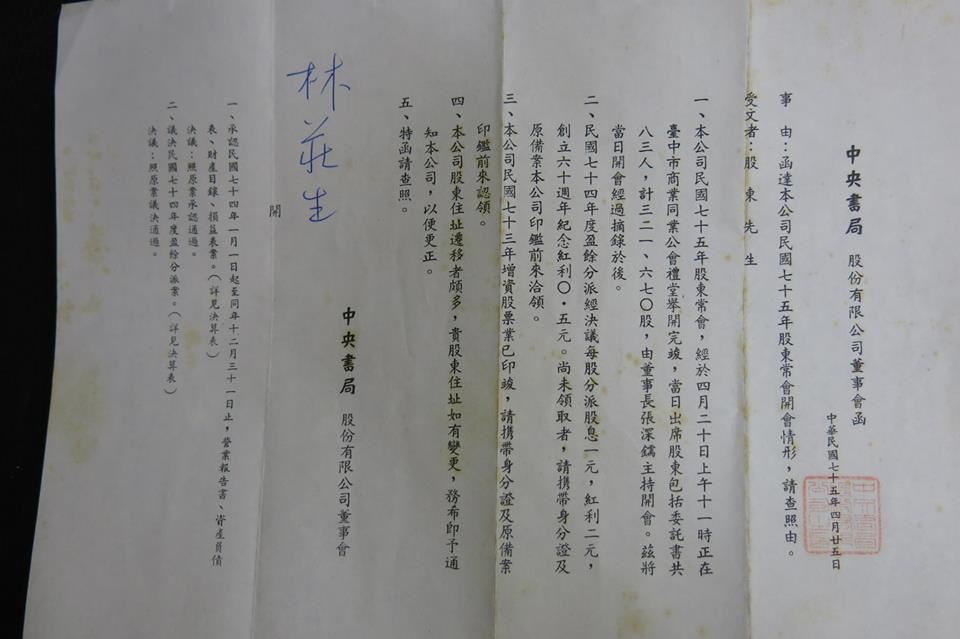 中央書局 股份有限公司董事會函
中華民國七十五年四月廿五日
事 由：函達本公司民國七十五年股東常會開會情形，請查照由。
受文者：股 東 先 生
一、本公司民國七十五年股東常會，經於四月二十日上午十一時正在
臺中市商業同業公會禮堂舉開完竣，當日出席股東包括委託書共
八三人，計三二一、六七〇股，由董事長張深鐫主持開會。茲將
當日開會經過摘錄於後。
二、民國七十四年度盈餘分派經決議每股分派股息一元，紅利二元，
創立六十週年紀念紅利〇．五元。尚未領取者，請携帶身分證及
原備業本公司印鑑前來洽領。
三、本公司民國七十三年增資股票業已印竣，請携帶身分證及原備案
印鑑前來認領。
四、本公司股東住址遷移者頗多，貴股東住址如有變更，務希即予通
知本公司，以便更正。
五、特函請查照。
中央書局 股份有限公司董事會
林莊生
開
一、承認民國七十四年一月一日起至同年十二月三十一日止，營業報告書、資產負債
表、財產目錄、損益表業。（詳見決算表）
決議：照原業承認通過。
二、議決民國七十四年度盈餘分派業。（詳見決算表）
決議：照原業議決通過。